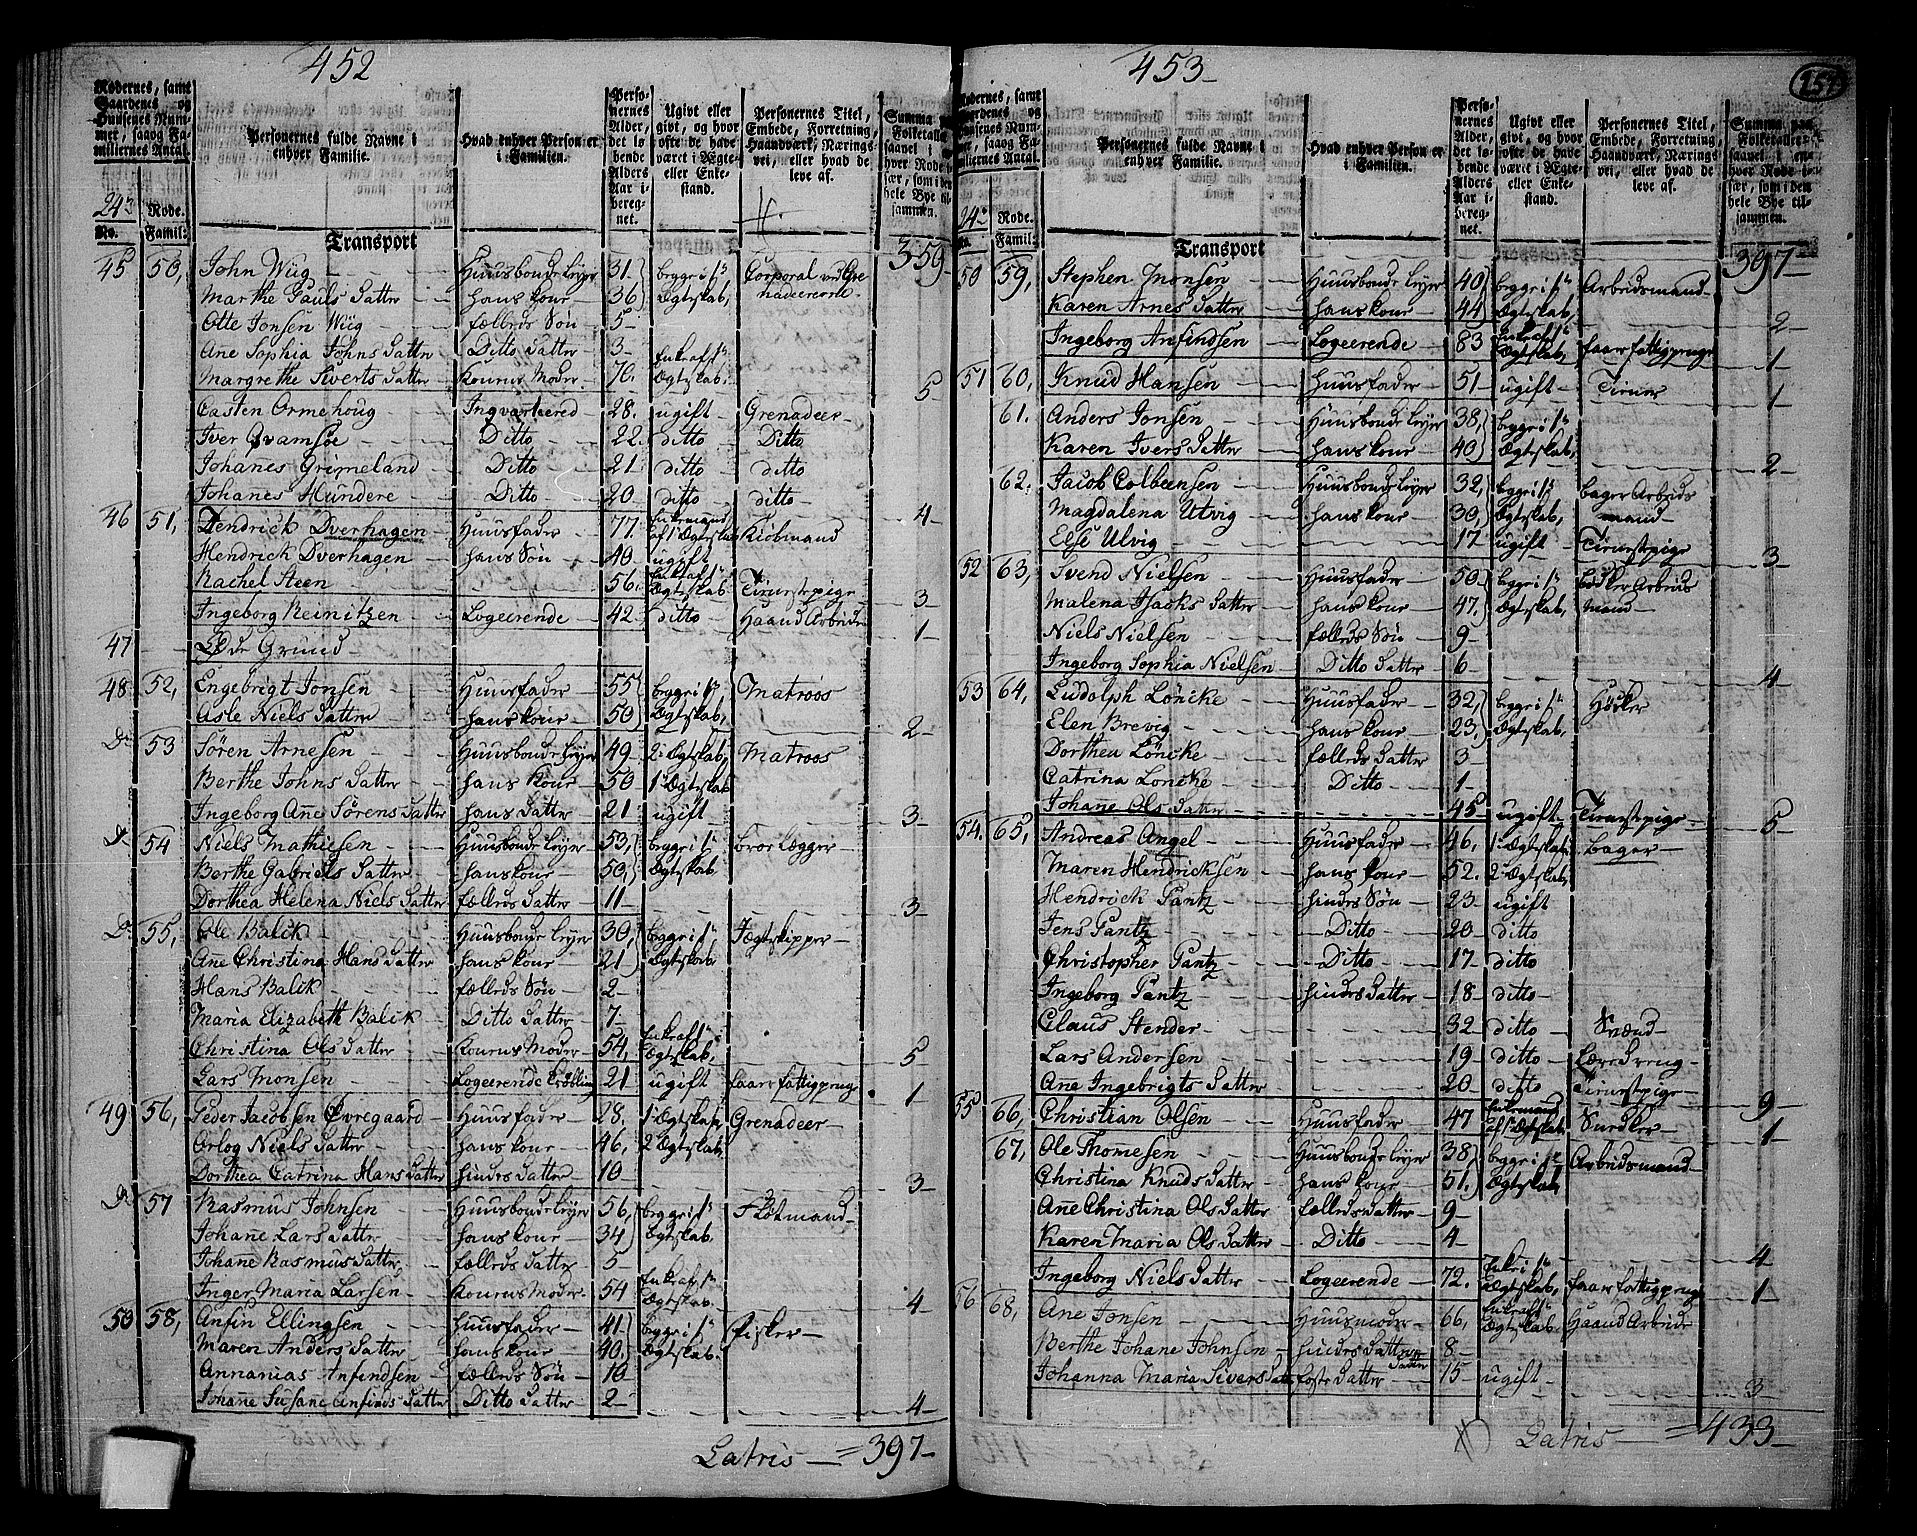 452
Rodernes, samt Gaardenes og Huusenes Nummer, saavog Familiernes Antal.
Personernes fulde Navne i enhver Familie.
Hvad enhver Person er i Familien.
Personernes Alder, det løbende Alders Aar iberegnet.
Ugivt eller givt, og hvor ofte de have været i Ægte- eller Enkestand.
Personernes Titel, Embede, Forretning, Haandværk, Næringsvei, eller hvad de leve af.
Summa paa Folketallet saavel i enhver Rode især, som i den hele Bye tilsammen.
24de Rode.
No. Famil:
Transport 359
45 50, John Wiig Huusbonde Leyer 31 begge i 1ste Corporal ved Gre
Marthe Pauls Datter hans kone 36 Ægteskab, nadeercorps
Otte Jonsen Wiig fælleds Søn 5
Ane Sophia Johns Datter Ditto Datter 3 Enke af 1ste
Margrethe Siverts Datter Konens Moder 70. Ægteskab. 5
Casten Ormehoug Inqvarteered 28. ugift Grenadeer
Iver Qvamsøe Ditto 22. ditto Ditto
Johanes Grimeland Ditto 21 ditto ditto
Johanes Hundere Ditto 20 ditto ditto 4
46 51, Hendrick Overhagen Huusfader 77. Enkemand af 1 Ægteskab Kiøbmand
Hendrick Overhagen hans Søn 40. ugift
Rachel Steen 56. Enke af 1ste Ægteskab Tienstepige 3
Ingeborg Reinitzen Logeerende 42. ditto Haand Arbeide 1
47 Øde Grund
48 52, Engebrigt Jonsen Huusfader 55 begge i 1ste Matroos
Asle Niels Datter hans kone 50 Ægteskab, 2
Do 53 Sören Arnesen Huusbonde Leyer 49 2 Ægteskab, Matroos
Berthe Johns Datter hans Kone 50 1 Ægteskab
Ingeborg Ane Sørens Datter hans Datter 21 ugift 3
Do 54 Niels Mathiesen Huusbonde Leyer 53, begge i 1ste Broe Lægger
Berthe Gabriels Datter hans kone 50, Ægteskab,
Dorthea Helena Niels Datter fælleds Datter 11 3
Do 55, Ole Balck Huusbonde Leyer 30, begge i 1ste Jægtskipper
Ane Christina Hans Datter hans kone 21 Ægteskab
Hans Balck fælleds Søn 2
Maria Elizabeth Balck Ditto Datter 7
Christina Ols Datter Konens Moder 54, Enke af 1ste Ægteskab, 5
Lars Monsen Logeerende Krøbling 21 ugift faaer fattigpenge 1
49 56, Peder Jacobsen Øvregaard Huusfader 28. 1 Ægteskab, Grenadeer
Orlog Niels Datter hans kone 46, 2 Ægteskab,
Dorthea Catrina Hans Datter hindes Datter 10 3
Do 57 Rasmus Johnsen Huusbonde Leyer 56, begge i 1ste Fløtmand
Johane Lars Datter hans kone 34 Ægteskab,
Johane Rasmus Datter fælleds Datter 5
Inger Maria Larsen Konens Moder 54 Enke af 1ste Ægteskab. 4
50 58, Anfin Ellingsen Huusfader 41 begge i 1ste Fisker
Maren Anders Datter hans kone 40, Ægteskab.
Annanias Anfindsen fælleds Søn 10
Johane Susane Anfinds Datter Ditto Datter 2 4
Latris = 397
453
157
Rodernes, samt Gaardenes og Huusenes Nummer, saavog Familiernes Antal.
Personernes fulde Navne i enhver Familie.
Hvad enhver Person er i Familien.
Personernes Alder, det løbende Alders Aar iberegnet.
Ugivt eller givt, og hvor ofte de have været i Ægte- eller Enkestand.
Personernes Titel, Embede, Forretning, Haandværk, Næringsvei, eller hvad de leve af.
Summa paa Folketallet saavel i enhver Rode især, som i den hele Bye tilsammen.
24de Rode.
No. Famil:
Transport 397
50 59, Stephen Monsen Huusbonde Leyer 40 begge i 1ste Arbeidsmand
Karen Arnes Datter hans kone 44 Ægteskab, 2
Ingeborg Anfindsen Logeerende 83 Enke af 1ste Ægteskab, faaer fattigpenge 1
51 60, Knud Hansen Huusfader 51 ugift Tiener 1
61. Anders Jonsen Huusbonde Leyer 38, begge i 1ste
Karen Ivers Datter hans kone 40 Ægteskab, 2
62. Jacob Colbeensen Huusbonde Leyer 32, begge i 1ste Bager Arbeids
Magdalena Utvig hans kone 30, Ægteskab, mand
Else Ulvig 17 ugift Tienstepige 3
52 63, Svend Nielsen Huusfader 50 begge i 1ste Bødker Arbeids
Malena Isacks Datter hans kone 47, Ægteskab, mand
Niels Nielsen fælleds Søn 9
Ingeborg Sophia Nielsen Ditto Datter 6 4
53 64, Ludolph Löncke Huusfader 32, begge i 1ste Høcker
Elen Brevig hans kone 23, Ægteskab,
Dorthea Löncke fælleds Datter 3
Catrina Löncke Ditto 1
Johane Ols Datter 45 ugift Tienstepige 5
54. 65, Andreas Angel Huusfader 46, 1 Ægteskab Bager
Maren Hendricksen hans kone 52. 2 Ægteskab,
Hendrick Pantz hindes Søn 23 ugift
Jens Pantz Ditto 20 ditto
Christopher Pantz Ditto 17 ditto
Ingeborg Pantz hindes Datter 18 ditto
Claus Stender 32 ditto Svend
Lars Andersen 19 ditto Læredreng
Ane Ingebrigts Datter 20 ditto Tienstepige 9
55 66, Christian Olsen Huusfader 47 Enkemand af 1 Ægteskab Snedker 1
67, Ole Thomesen Huusbonde Leyer 38, begge i 1ste Arbeidsmand
Christina Knuds Datter hans kone 51, Ægteskab,
Ane Christina Ols Datter fælleds Datter 9
Karen Maria Ols Datter Ditto 4 4
Ingeborg Niels Datter Logeerende 72. Enke i 1ste Ægteskab, faaer fattigpenge 1
56 68, Ane Jonsen Huusmoder 66, Enke af 1ste Ægteskab. Haand Arbeide
Berthe Johane Johnsen hindes Datter Datter 8
Johanna Maria Sivers Datter foster Datter 15 ugift 3
Latris = 433